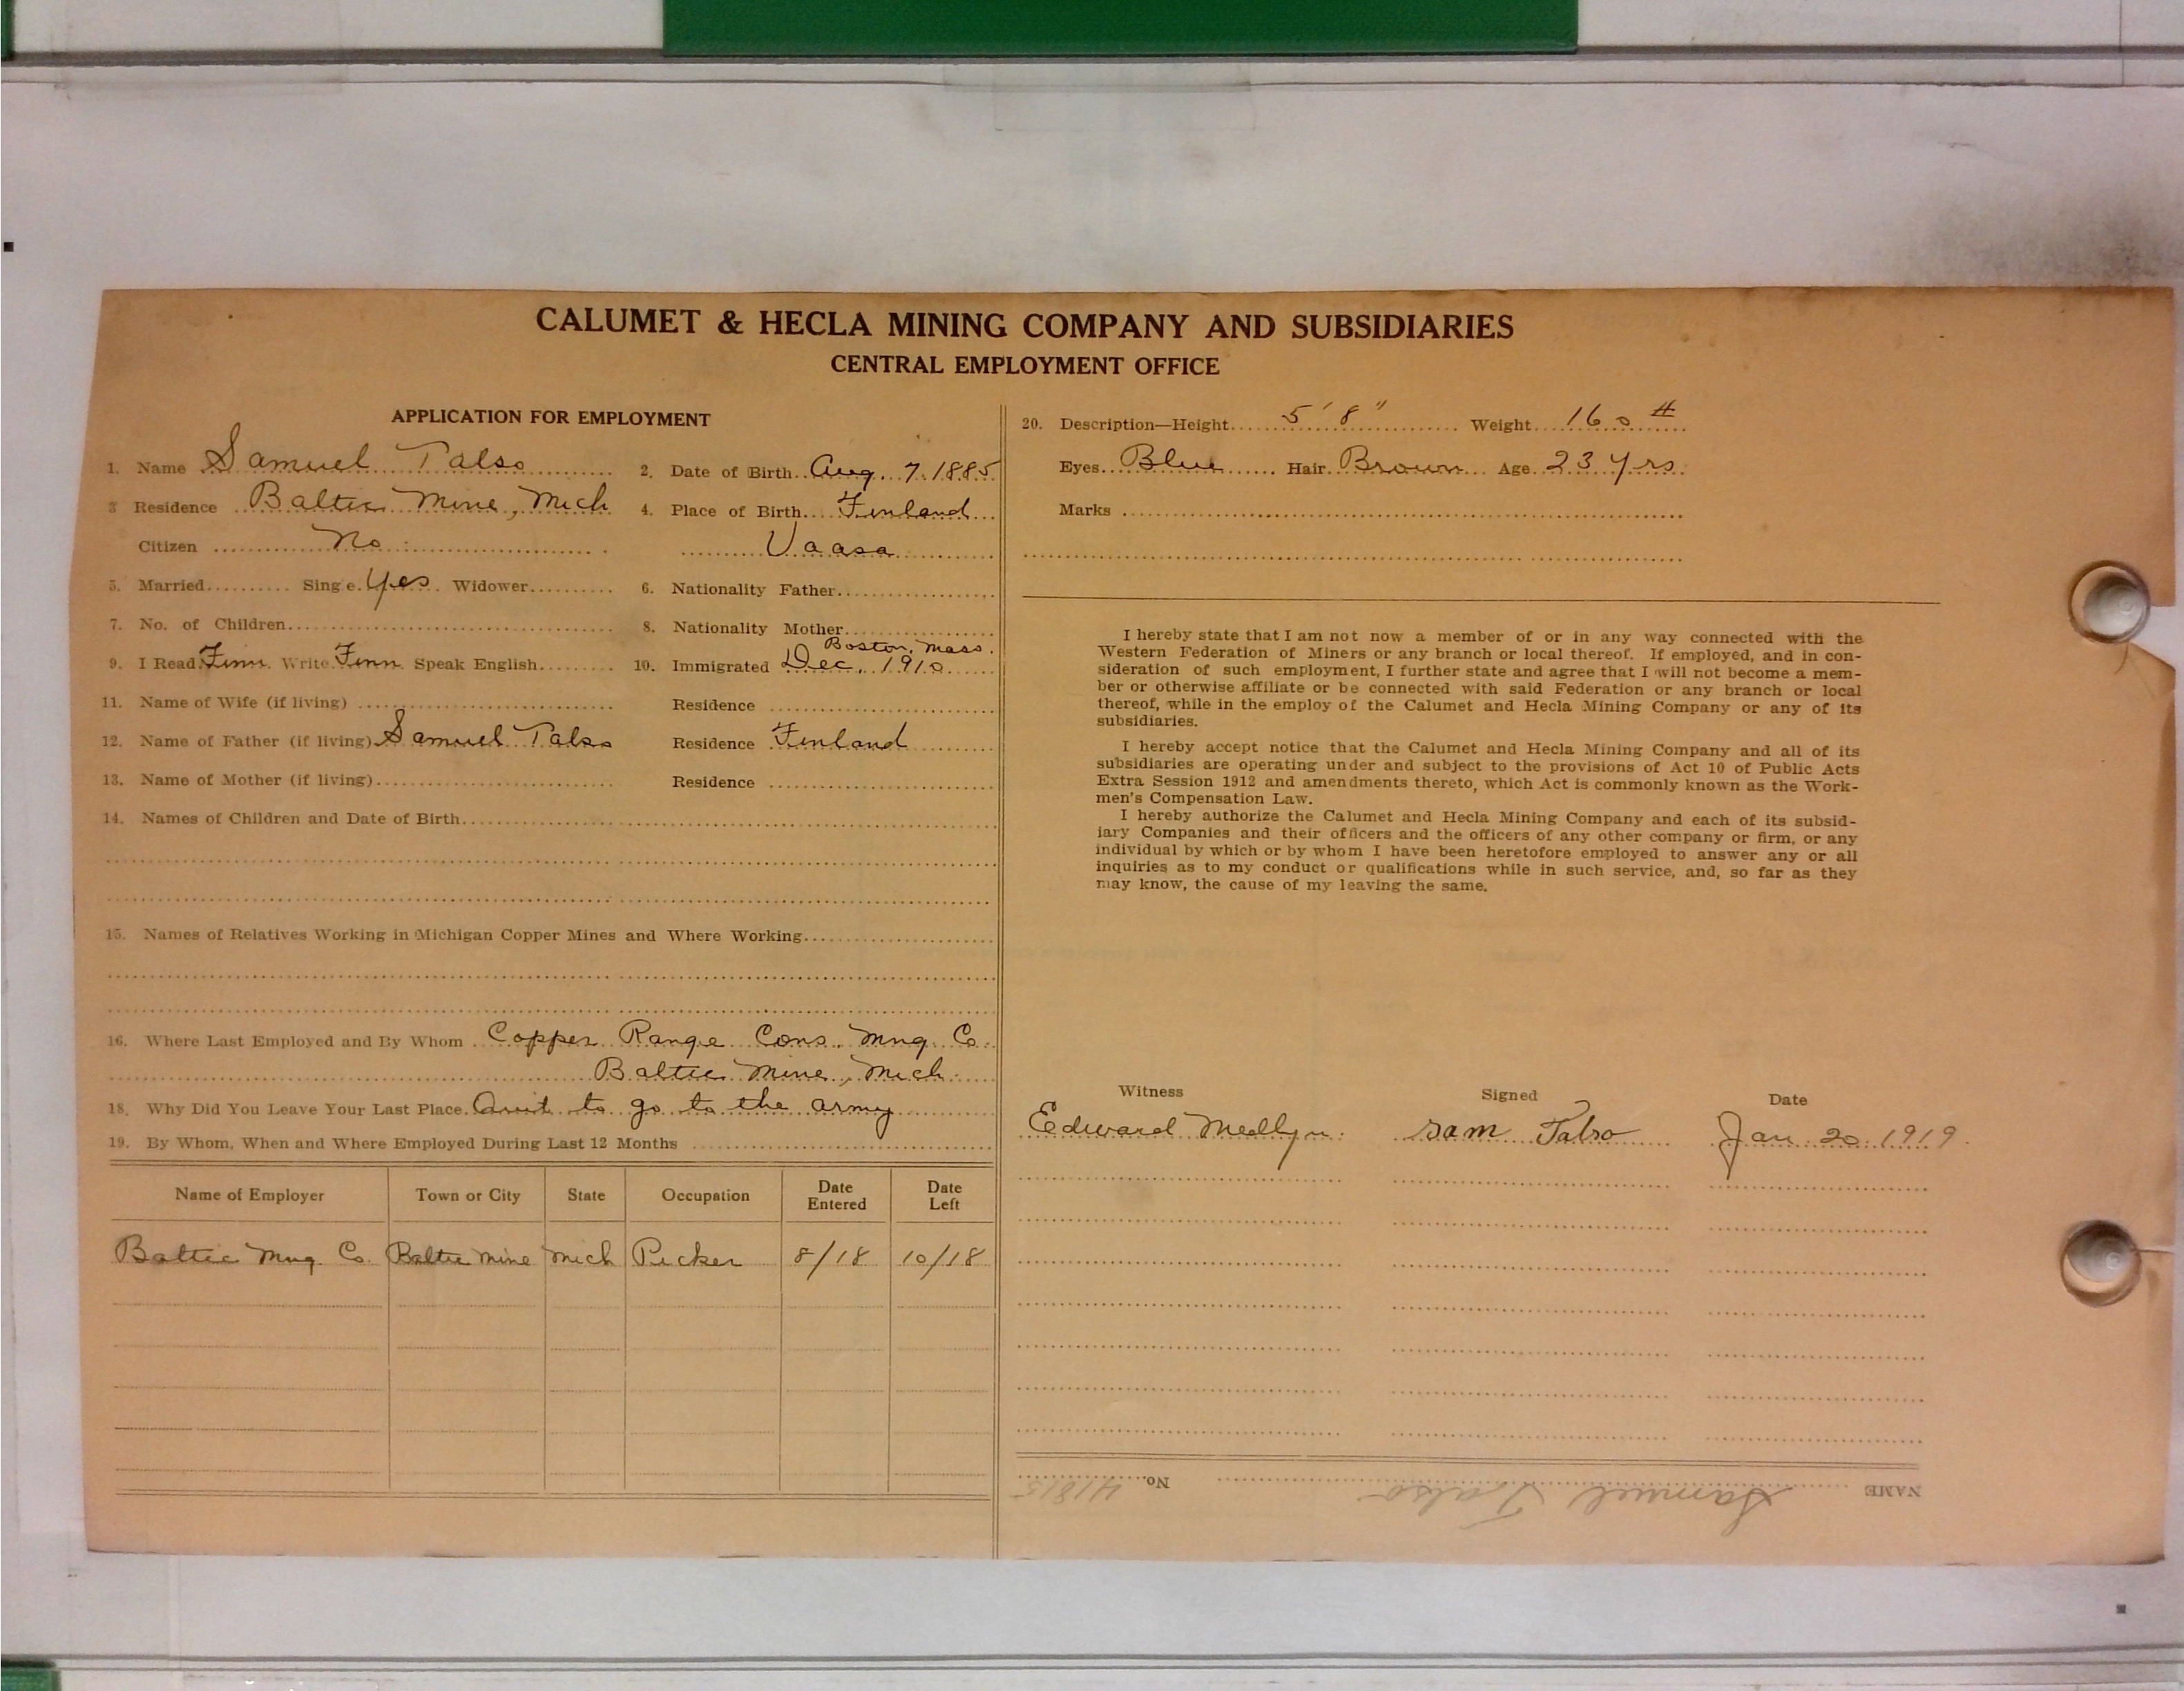 CALUMET & HECLA MINING COMPANY AND SUBSIDIARIES
CENTRAL EMPLOYMENT OFFICE
APPLICATION FOR EMPLOYMENT
1. Name Samuel Talso
2. Date of Birth Aug. 7. 1885
3 Residence Baltic Mine, Mich
4. Place of Birth Finland
Citizen No
Vaasa
5. Married Single Yes Widower
6. Nationality Father
7. No. of Children
8. Nationality Mother
Boston, Mass.
9. I Read Finn. Write Finn. Speak English
10. Immigrated Dec. 1910
11. Name of Wife (if living)
Residence
12. Name of Father (if living) Samuel Talso
Residence Finland
13. Name of Mother (if living)
Residence
14. Names of Children and Date of Birth
15. Names of Relatives Working in Michigan Copper Mines and Where Working
16. Where Last Employed and By Whom Copper Range Cons. Mng. Co.
Baltic Mine, Mich.
18. Why Did You Leave Your Last Place. Quit to go to the army
19. By Whom, When and Where Employed During Last 12 Months
Name of Employer Town or City State Occupation Date Entered Date Left
Baltic Mng. Co. Baltic Mine Mich Picker 8/18 10/18
20. Description—Height 5' 8" Weight 160 #
Eyes Blue Hair Brown Age 23 yrs
Marks
I hereby state that I am not now a member of or in any way connected with the
Western Federation of Miners or any branch or local thereof. If employed, and in con-
sideration of such employment, I further state and agree that I will not become a mem-
ber or otherwise affiliate or be connected with said Federation or any branch or local
thereof, while in the employ of the Calumet and Hecla Mining Company or any of its
subsidiaries.
I hereby accept notice that the Calumet and Hecla Mining Company and all of its
subsidiaries are operating under and subject to the provisions of Act 10 of Public Acts
Extra Session 1912 and amendments thereto, which Act is commonly known as the Work-
men's Compensation Law.
I hereby authorize the Calumet and Hecla Mining Company and each of its subsid-
iary Companies and their officers and the officers of any other company or firm, or any
individual by which or by whom I have been heretofore employed to answer any or all
inquiries as to my conduct or qualifications while in such service, and, so far as they
may know, the cause of my leaving the same.
Witness Signed Date
Edward Medlyn. Sam Talso Jan. 20. 1919.
NAME Samuel Talso No. 41815